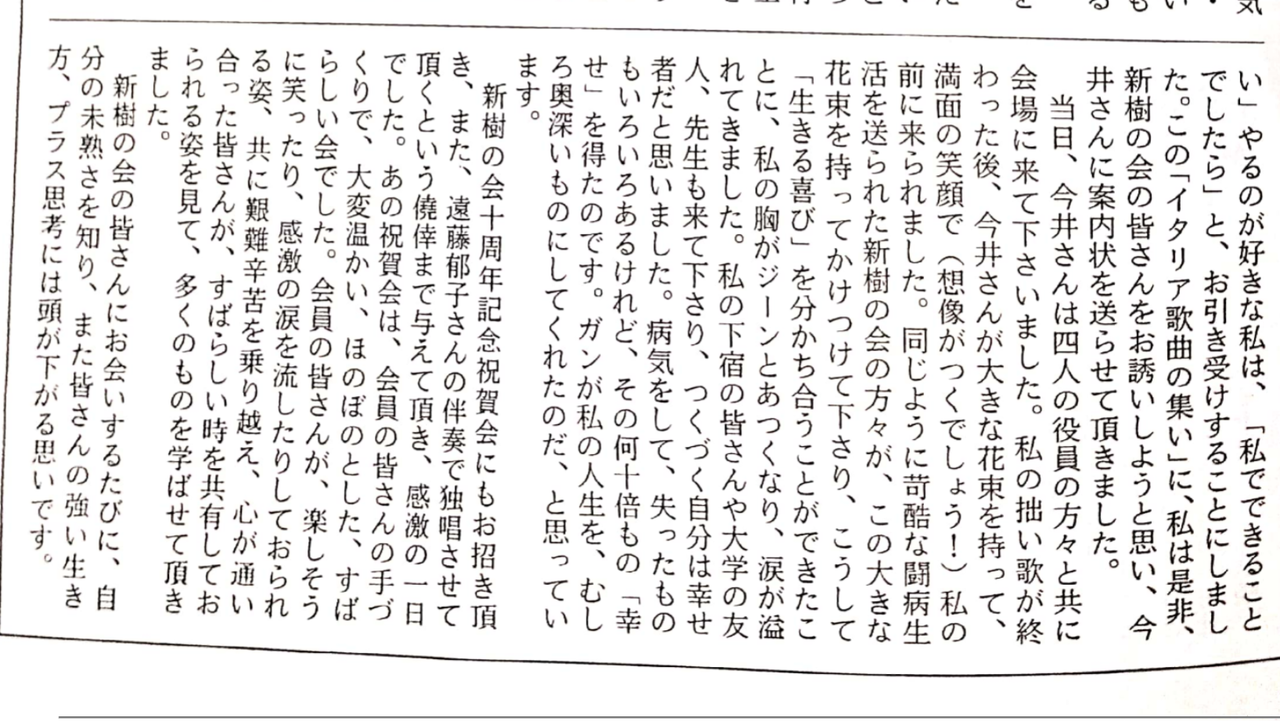 い」やるのが好きな私は、「私でできること
でしたら」と、お引き受けすることにしまし
た。この「イタリア歌曲の集い」に、私は是非、
新樹の会の皆さんをお誘いしようと思い、今
井さんに案内状を送らせて頂きました。
当日、今井さんは四人の役員の方々と共に
会場に来て下さいました。私の拙い歌が終
わった後、今井さんが大きな花束を持って、
満面の笑顔で（想像がつくでしょう！）私の
前に来られました。同じように苛酷な闘病生
活を送られた新樹の会の方々が、この大きな
花束を持ってかけつけて下さり、こうして
「生きる喜び」を分かち合うことができたこ
とに、私の胸がジーンとあつくなり、涙が溢
れてきました。私の下宿の皆さんや大学の友
人、先生も来て下さり、つくづく自分は幸せ
者だと思いました。病気をして、失ったもの
もいろいろあるけれど、その何十倍もの「幸
せ」を得たのです。ガンが私の人生を、むし
ろ奥深いものにしてくれたのだ、と思ってい
ます。
新樹の会十周年記念祝賀会にもお招き頂
き、また、遠藤郁子さんの伴奏で独唱させて
頂くという僥倖まで与えて頂き、感激の一日
でした。あの祝賀会は、会員の皆さんの手づ
くりで、大変温かい、ほのぼのとした、すば
らしい会でした。会員の皆さんが、楽しそう
に笑ったり、感激の涙を流したりしておられ
る姿、共に艱難辛苦を乗り越え、心が通い
合った皆さんが、すばらしい時を共有してお
られる姿を見て、多くのものを学ばせて頂き
ました。
新樹の会の皆さんにお会いするたびに、自
分の未熟さを知り、また皆さんの強い生き
方、プラス思考には頭が下がる思いです。